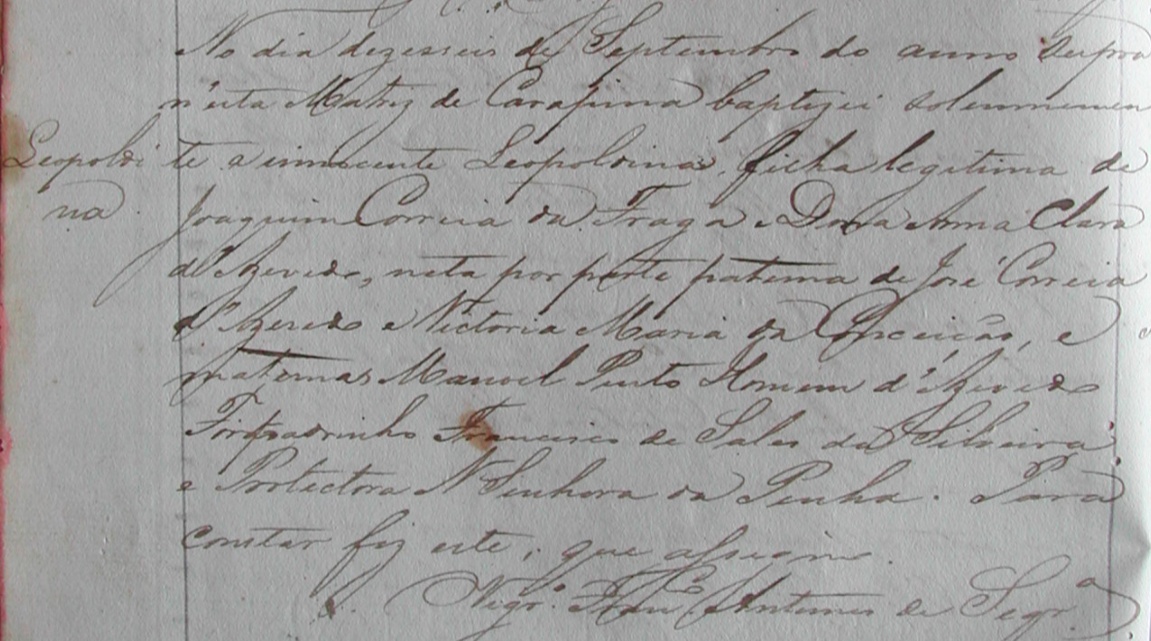 No dia dezesseis de Septembro do anno supra
n'esta Matriz de Carapina baptizei solemnemen
Leopoldi
te a innocente Leopoldina, filha legitima de
na
Joaquim Correia da Fraga e Dona Anna Clara
d'Azevedo, neta por parte paterna de José Correia
d'Azevedo e Victoria Maria da Conceicão, e
maternas Manoel Pinto Homem d'Azevedo
Foi padrinho Francisco de Sales da Silveira
e Protectora N Senhora da Penha. Para
constar fiz este, que assigno.
Vigr.º Franc.º Antunes de Seqr.ª